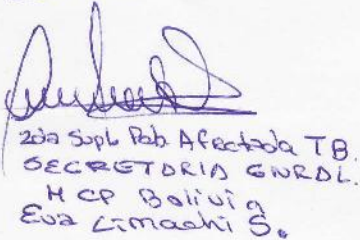 2da Supl Pob. Afectada TB.
SECRETARIA GNRAL.
MCP Bolivia
Eva Limachi S.